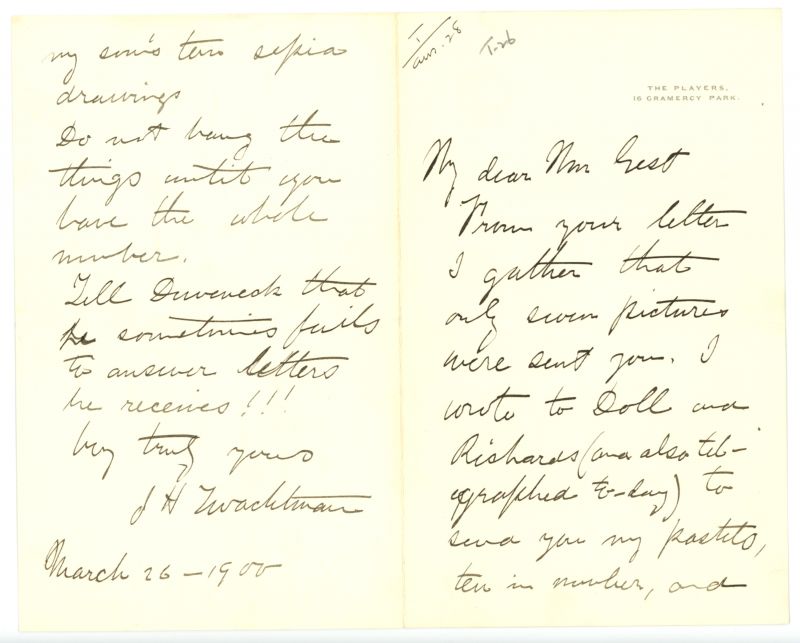 T-26
THE PLAYERS,
16 GRAMERCY PARK.
My dear Mr Gest
From your letter
I gather that
only seven pictures
were sent you. I
wrote to Doll and
Richards (and also tel-
egraphed to-day) to
send you my pastels,
ten in number, and
my son's ten sepia
drawings
Do not hang the
things until you
have the whole
number.
Tell Duveneck that
he sometimes fails
to answer letters
he receives!!!
Very truly yours
J H Twachtman
March 26 - 1900